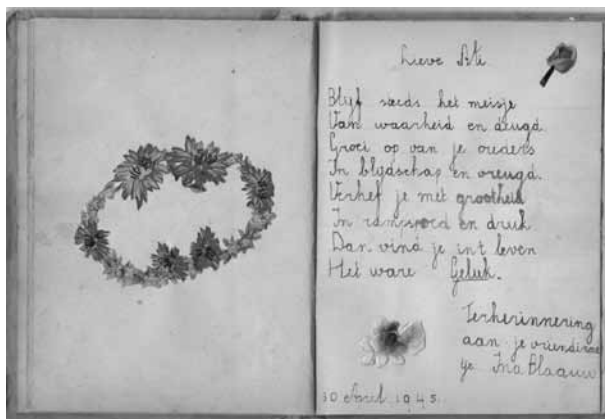 Lieve Ati
Blijf steeds het meisje
Van waarheid en deugd.
Groei op van je ouders
In blijdschap en vreugd.
Verhef je met grootheid
In rampspoed en druk
Dan vind je int leven
Het ware Geluk.
Terherinnering
aan je vriendinne
tje Ina Blaauw
30 April 1945.